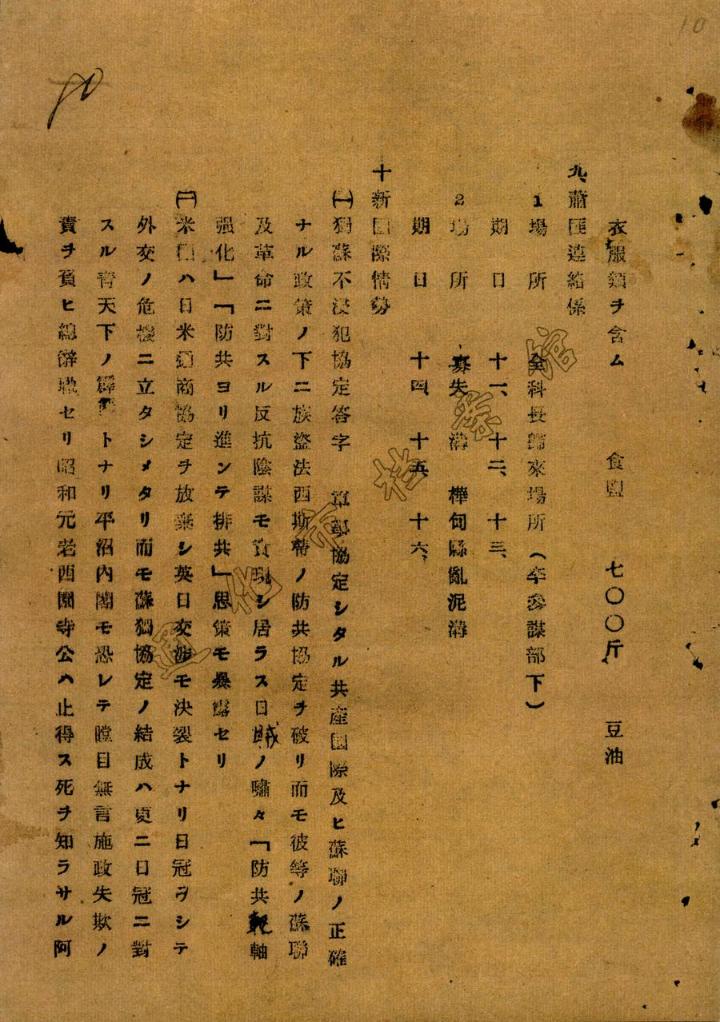 10
衣服類ヲ含ム　食鹽　七〇〇斤　豆油
九、蕭匪連絡係
1 場所　全科長歸來場所（李參謀部下）
期日　十一、十二、十三、
2 場所　寡失溝　樺甸縣亂泥溝
期日　十四、十五、十六、
十 新国際情勢
㈠ 獨蘇不浸犯協定答字　協定シタル共産國際及ヒ蘇聯ノ正確
ナル政策ノ下ニ族盜法西斯蒂ノ防共協定ヲ破リ而モ彼等ノ蘇聯
及革命ニ對スル反抗陰謀モ實現シ居ラス日賊ノ嘯々「防共軸
强化」「防共ヨリ進ンテ排共」思策モ暴露セリ
㈡ 米國ハ日米通商協定ヲ放棄シ英日交渉モ決裂トナリ日冠ヲシテ
外交ノ危機ニ立タシメタリ而モ蘇獨協定ノ結成ハ更ニ日冠ニ對
スル青天下ノ トナリ平沼内閣モ恐レテ瞠目無言施政失欺ノ
責ヲ負ヒ總辭職セリ昭和元老西園寺公ハ止得ス死ヲ知ラサル阿
通化市档案館